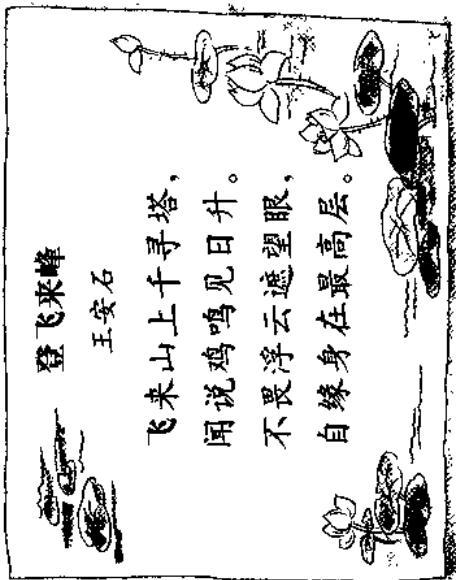 登飞来峰
王安石
飞来山上千寻塔，
闻说鸡鸣见日升。
不畏浮云遮望眼，
自缘身在最高层。